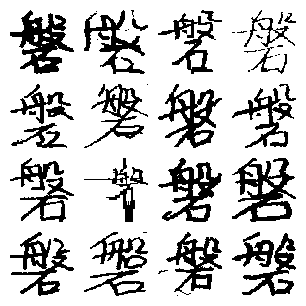 磐磐磐磐
磐磐磐磐
磐磐磐磐
磐磐磐磐